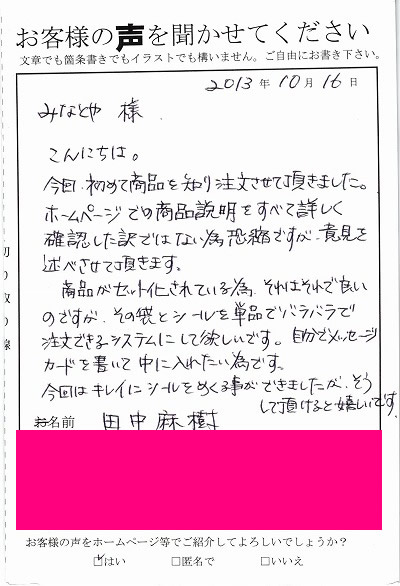 お客様の声を聞かせてください
文章でも箇条書きでもイラストでも構いません。ご自由にお書き下さい。
2013年10月16日
みなとや 様
こんにちは。
今回、初めて商品を知り注文させて頂きました。
ホームページでの商品説明をすべて詳しく
確認した訳ではない為恐縮ですが、意見を
述べさせて頂きます。
商品がセット化されている為、それはそれで良い
のですが、その袋とシールを単品でバラバラで
注文できるシステムにして欲しいです。自分でメッセージ
カードを書いて中に入れたい為です。
今回はキレイにシールをめくる事ができましたが、そう
して頂けると嬉しいです。
お名前 田中麻樹
切り取り線
お客様の声をホームページ等でご紹介してよろしいでしょうか?
☑はい □匿名で □いいえ